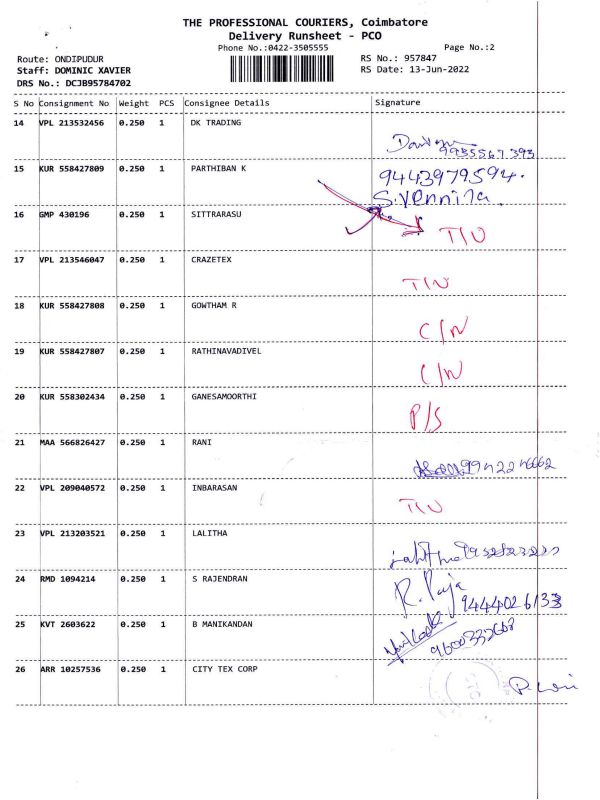 THE PROFESSIONAL COURIERS, Coimbatore
Delivery Runsheet - PCO
Phone No.:0422-3505555
Page No.:2
Route: ONDIPUDUR
RS No.: 957847
Staff: DOMINIC XAVIER
RS Date: 13-Jun-2022
DRS No.: DCJB95784702
S No Consignment No Weight PCS Consignee Details Signature
14 VPL 213532456 0.250 1 DK TRADING
15 KUR 558427809 0.250 1 PARTHIBAN K 9443979594.
S.Vennila.
16 GMP 430196 0.250 1 SITTRARASU
17 VPL 213546047 0.250 1 CRAZETEX
18 KUR 558427808 0.250 1 GOWTHAM R C/N
19 KUR 558427807 0.250 1 RATHINAVADIVEL C/N
20 KUR 558302434 0.250 1 GANESAMOORTHI P/S
21 MAA 566826427 0.250 1 RANI
22 VPL 209040572 0.250 1 INBARASAN
23 VPL 213203521 0.250 1 LALITHA
24 RMD 1094214 0.250 1 S RAJENDRAN R. Raja
9444026133
25 KVT 2603622 0.250 1 B MANIKANDAN
26 ARR 10257536 0.250 1 CITY TEX CORP